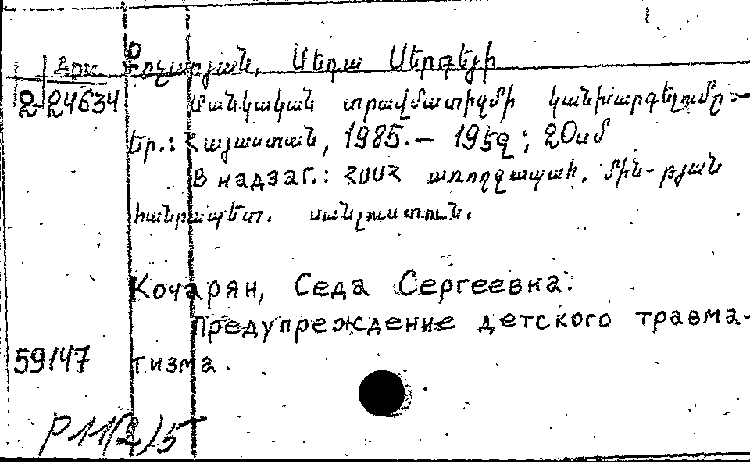 Арм Քոչարյան, Սեդա Սերգեյի
2-24634 Մանկական տրավմատիզմի կանխարգելումը.—
Եր.: Հայաստան, 1985.— 195 զ; 20սմ
В надзаг.: ՀՍՍՀ առողջապահ. մին-թյան
հանրապետ. սանլուստուն.
Кочарян, Седа Сергеевна.
Предупреждение детского травма-
59147 тизма.
Р11(2)5